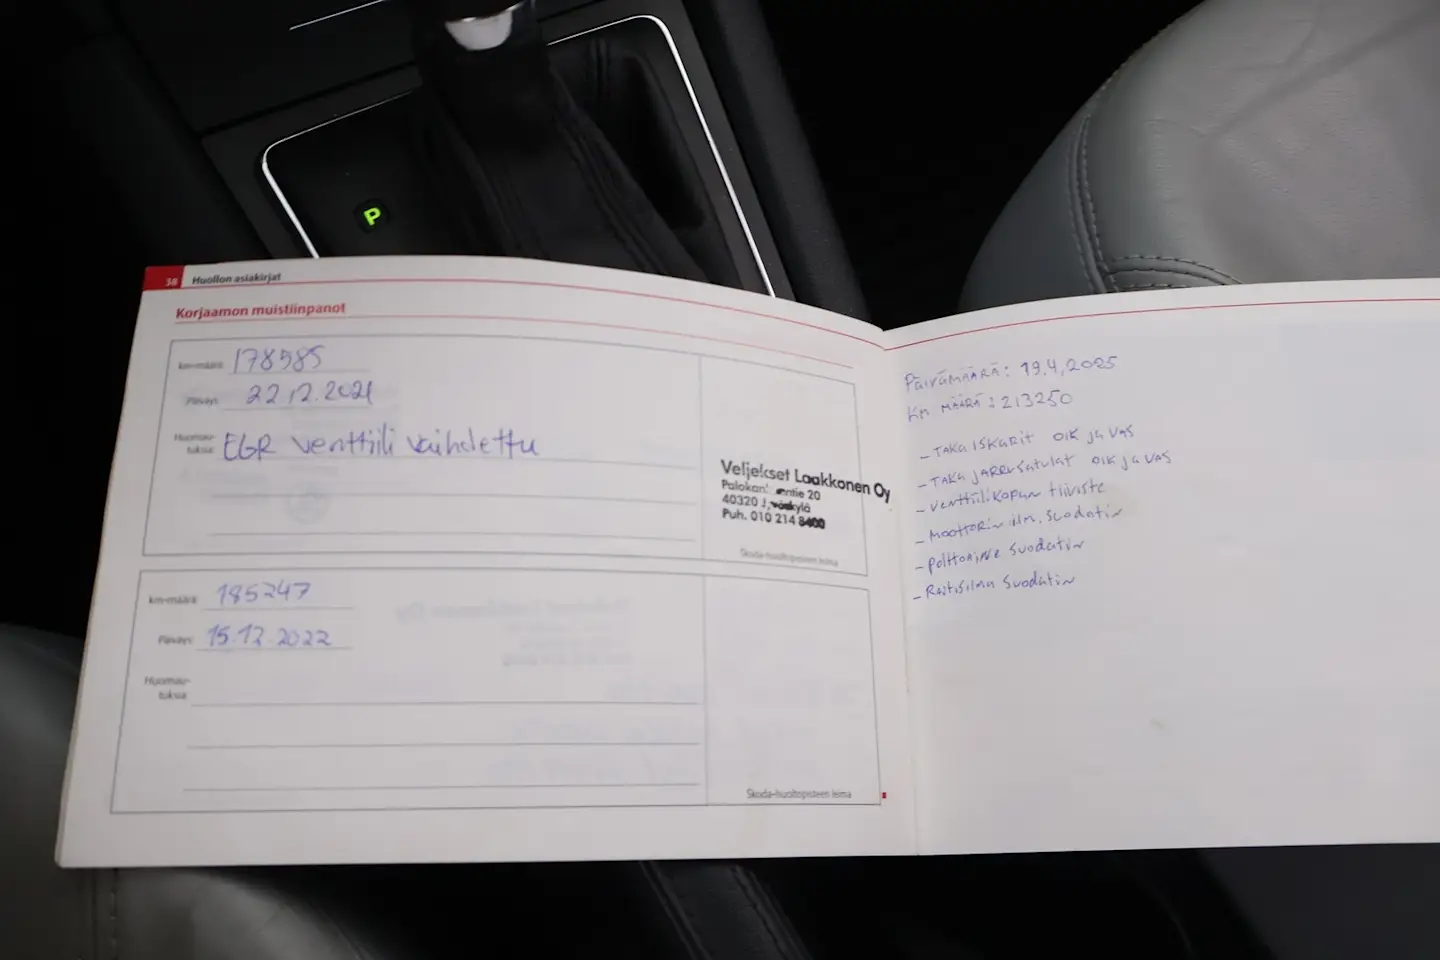 P
38 Huollon asiakirjat
Korjaamon muistiinpanot
km-määrä 178585
Päiväys 22.12.2021
Huomau-
tuksia EGR venttiili vaihdettu
Veljekset Laakkonen Oy
20
40320
Puh. 010 214 8400
Skoda-huoltopisteen leima
km-määrä 185247
Päiväys 15.12.2022
Huomau-
tuksia
Skoda-huoltopisteen leima
PÄIVÄMÄÄRÄ: 19.4.2025
KM MÄÄRÄ: 213250
- TAKA ISKARIT OIK JA VAS
- TAKA JARRUSATULAT OIK JA VAS
- Venttiilikopan tiiviste
- MOOTTORIN ilm. Suodatin
- polttoaine suodatin
- Raitisilma Suodatin